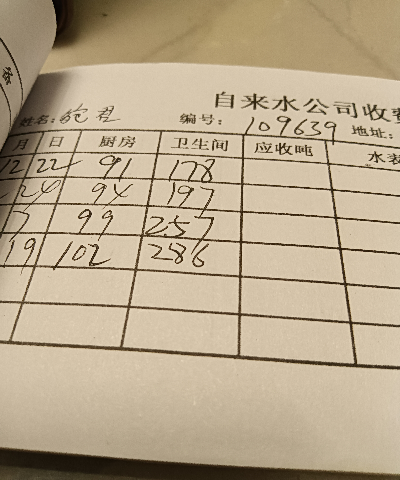 自来水公司收费
姓名: 鲍君 编号: 109639 地址:
月 日 厨房 卫生间 应收吨 水表
12 22 91 178
24 94 197
7 99 257
19 102 286